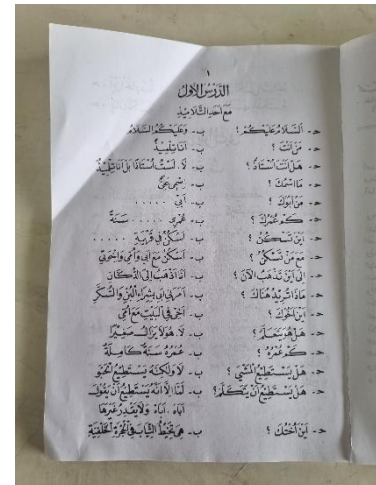 ١
الدَّرْسُ الْأَوَّلُ
مَعَ أَحَدِ التَّلَامِيْذِ
ح- اَلسَّلَامُ عَلَيْكُمْ ! ب- وَعَلَيْكُمُ السَّلَامُ
ح- مَنْ أَنْتَ ؟ ب- أَنَا تِلْمِيْذٌ
ح- هَلْ أَنْتَ أُسْتَاذٌ ؟ ب- لَا، لَسْتُ أُسْتَاذًا بَلْ أَنَا تِلْمِيْذٌ
ح- مَا اسْمُكَ ؟ ب- اِسْمِيْ عَلِيٌّ
ح- مَنْ أَبُوْكَ ؟ ب- أَبِيْ .....
ح- كَمْ عُمْرُكَ ؟ ب- عُمْرِيْ ..... سَنَةً
ح- أَيْنَ تَسْكُنُ ؟ ب- أَسْكُنُ فِيْ قَرْيَةِ .....
ح- مَعَ مَنْ تَسْكُنُ ؟ ب- أَسْكُنُ مَعَ أَبِيْ وَأُمِّيْ وَإِخْوَتِيْ
ح- إِلَى أَيْنَ تَذْهَبُ الْآنَ ؟ ب- أَنَا أَذْهَبُ إِلَى الدُّكَّانِ
ح- مَاذَا تُرِيْدُ هُنَاكَ ؟ ب- أَمَرَنِيْ أَبِيْ بِشِرَاءِ الْبُنِّ وَالسُّكَّرِ
ح- أَيْنَ أَخُوْكَ ؟ ب- أَخِيْ فِي الْبَيْتِ مَعَ أُمِّيْ
ح- هَلْ هُوَ يَتَعَلَّمُ ؟ ب- لَا، هُوَ لَا يَزَالُ صَغِيْرًا
ح- كَمْ عُمْرُهُ ؟ ب- عُمْرُهُ سَنَةٌ كَامِلَةٌ
ح- هَلْ يَسْتَطِيْعُ الْمَشْيَ ؟ ب- لَا وَلٰكِنَّهُ يَسْتَطِيْعُ الْحَبْوَ
ح- هَلْ يَسْتَطِيْعُ أَنْ يَتَكَلَّمَ ؟ ب- لَا إِلَّا أَنَّهُ يَسْتَطِيْعُ أَنْ يَقُوْلَ
وَلَا يَقْدِرُ غَيْرَهَا
ح- أَيْنَ أُخْتُكَ ؟ ب- هِيَ تَخِيْطُ الثِّيَابَ فِي الْحُجْرَةِ الْخَلْفِيَّةِ